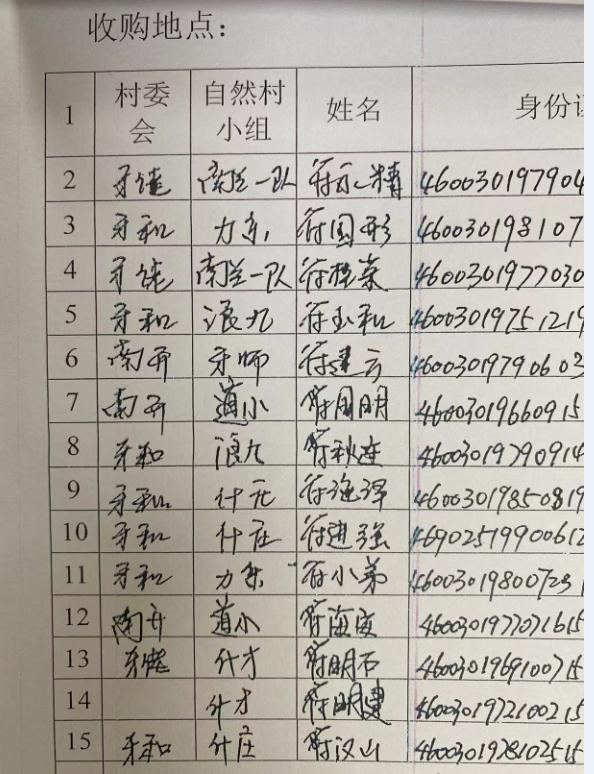 收购地点：
1 村委会 自然村小组 姓名 身份证
2 牙佬 南兰一队 符 精 460030197904
3 牙和 力东 符国形 460030198107
4 牙佬 南兰一队 符桂菜 4600301977030
5 牙和 浪九 符玉和 46003019751219
6 南开 牙师 符建云 46003019790603
7 南开 道小 符周明 46003019660915
8 牙和 浪九 符秋连 46003019790914
9 牙和 什元 符海泽 46003019850819
10 牙和 什庄 符进强 46902519900612
11 牙和 力东 符小弟 46003019800723
12 南开 道小 符 4600301977071615
13 什才 符明石 4600301969100715
14 什才 符明建 4600301972100215
15 牙和 什庄 符汉山 4600301978102515